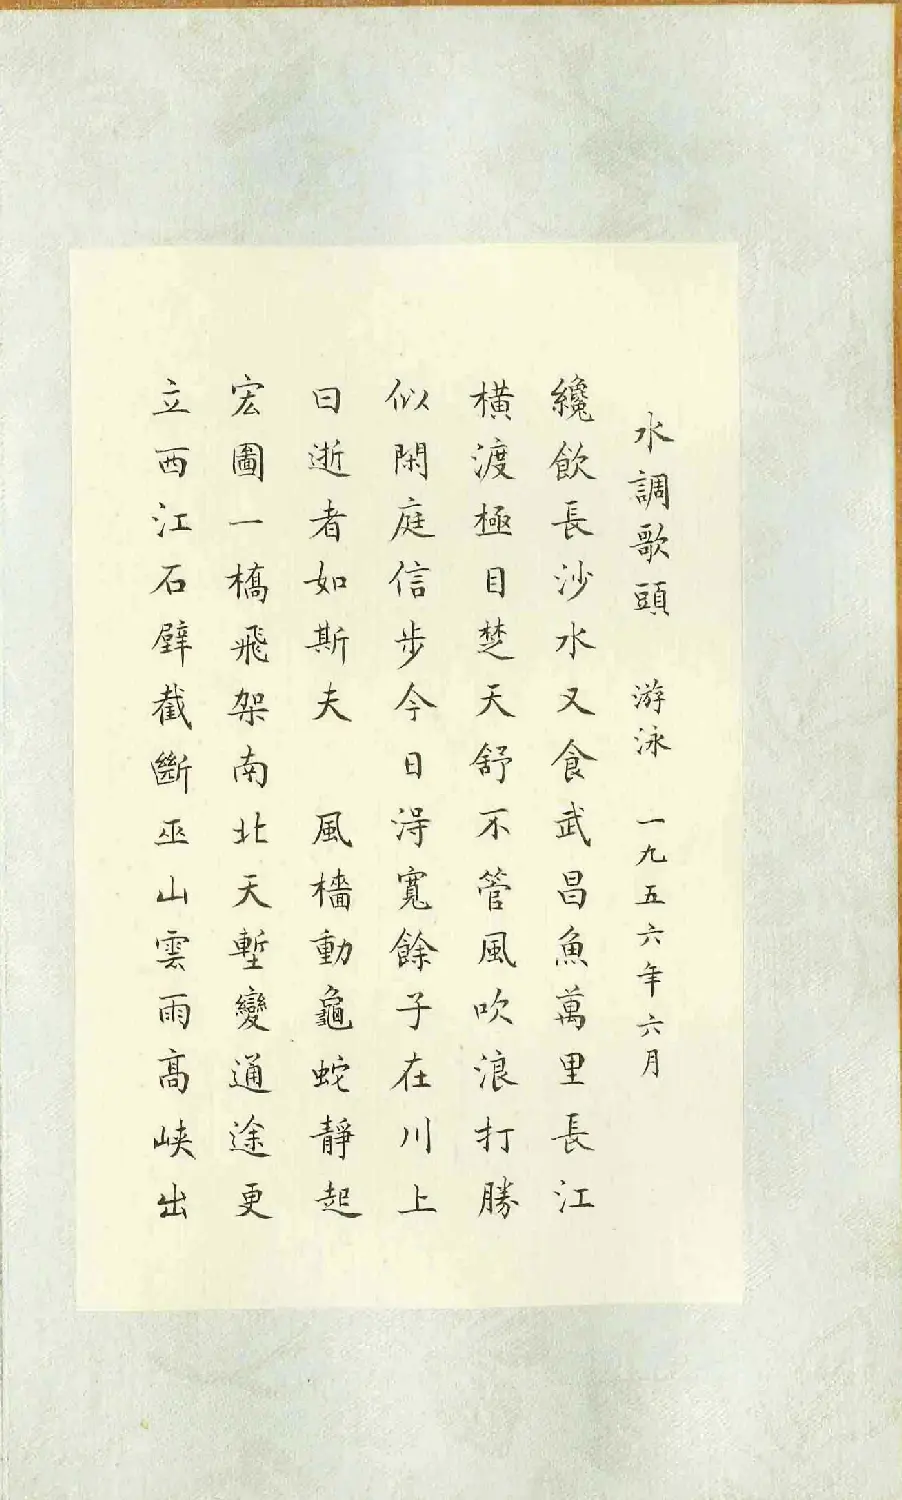 水調歌頭　游泳　一九五六年六月
纔飲長沙水又食武昌魚萬里長江
橫渡極目楚天舒不管風吹浪打勝
似閑庭信步今日得寬餘子在川上
曰逝者如斯夫　風檣動龜蛇靜起
宏圖一橋飛架南北天塹變通途更
立西江石壁截斷巫山雲雨高峽出